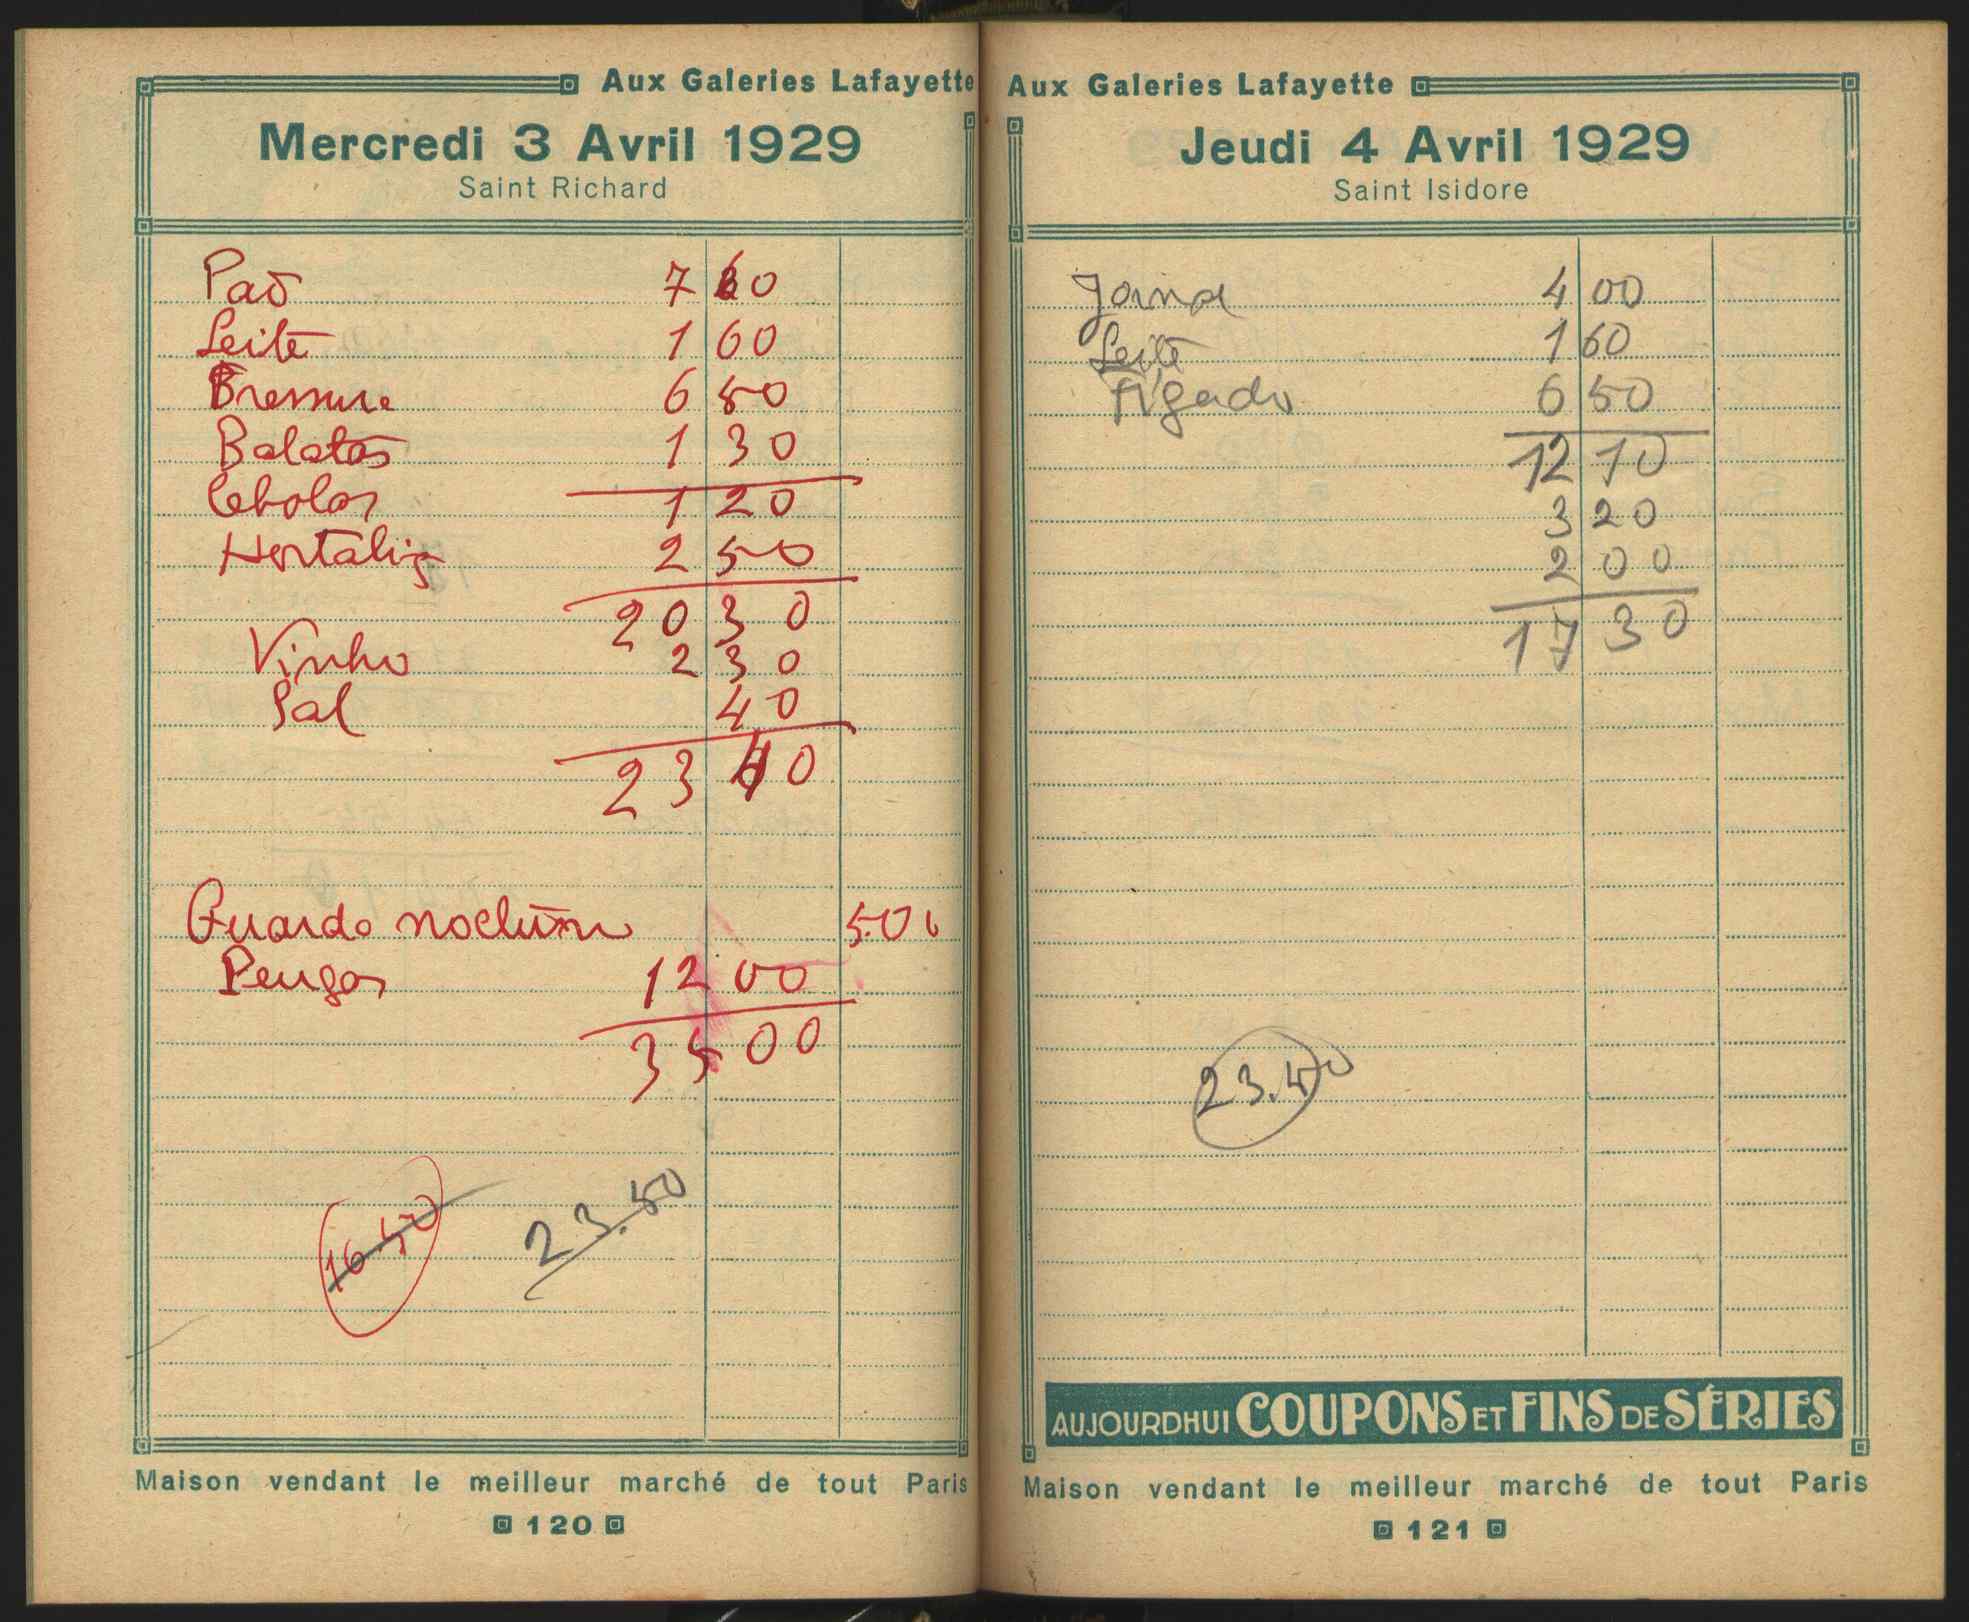 Aux Galeries Lafayette
Mercredi 3 Avril 1929
Saint Richard
Paõ 7 60
Leite 1 60
6 50
Batatas 1 30
Cebolas 1 20
Hortaliç 2 50
20 30
Vinho 2 30
Sal 40
23 40
Guarda nocturn 5.00
Peugas 12 00
35 00
16.40
23.50
Maison vendant le meilleur marché de tout Paris
120
Aux Galeries Lafayette
Jeudi 4 Avril 1929
Saint Isidore
4 00
Leite 1 60
Figado 6 50
12 10
3 20
2 00
17 30
23.40
AUJOURDHUI COUPONS ET FINS DE SÉRIES
Maison vendant le meilleur marché de tout Paris
121